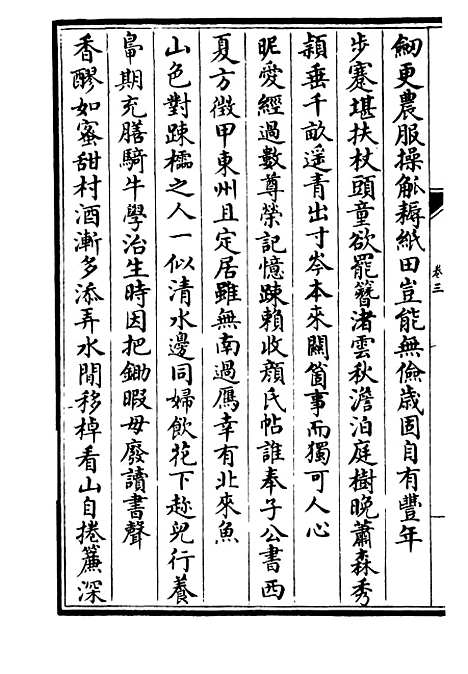 卷三
刱更農服操觚耨紙田豈能無儉歳固自有豐年
步蹇堪扶杖頭童欲罷簪渚雲秋澹泊庭樹晚蕭森秀
頴垂千畝遥青出寸岑本來關箇事而獨可人心
昵愛經過數尊榮記憶踈賴收顔氏帖誰奉子公書西
夏方徴甲東州且定居雖無南過鴈幸有北來魚
山色對踈櫺之人一似清水邊同婦飲花下趂兒行養
期充膳騎牛學治生時因把鋤暇毋廢讀書聲
香醪如蜜甜村酒漸多添弄水閒移棹看山自捲簾深